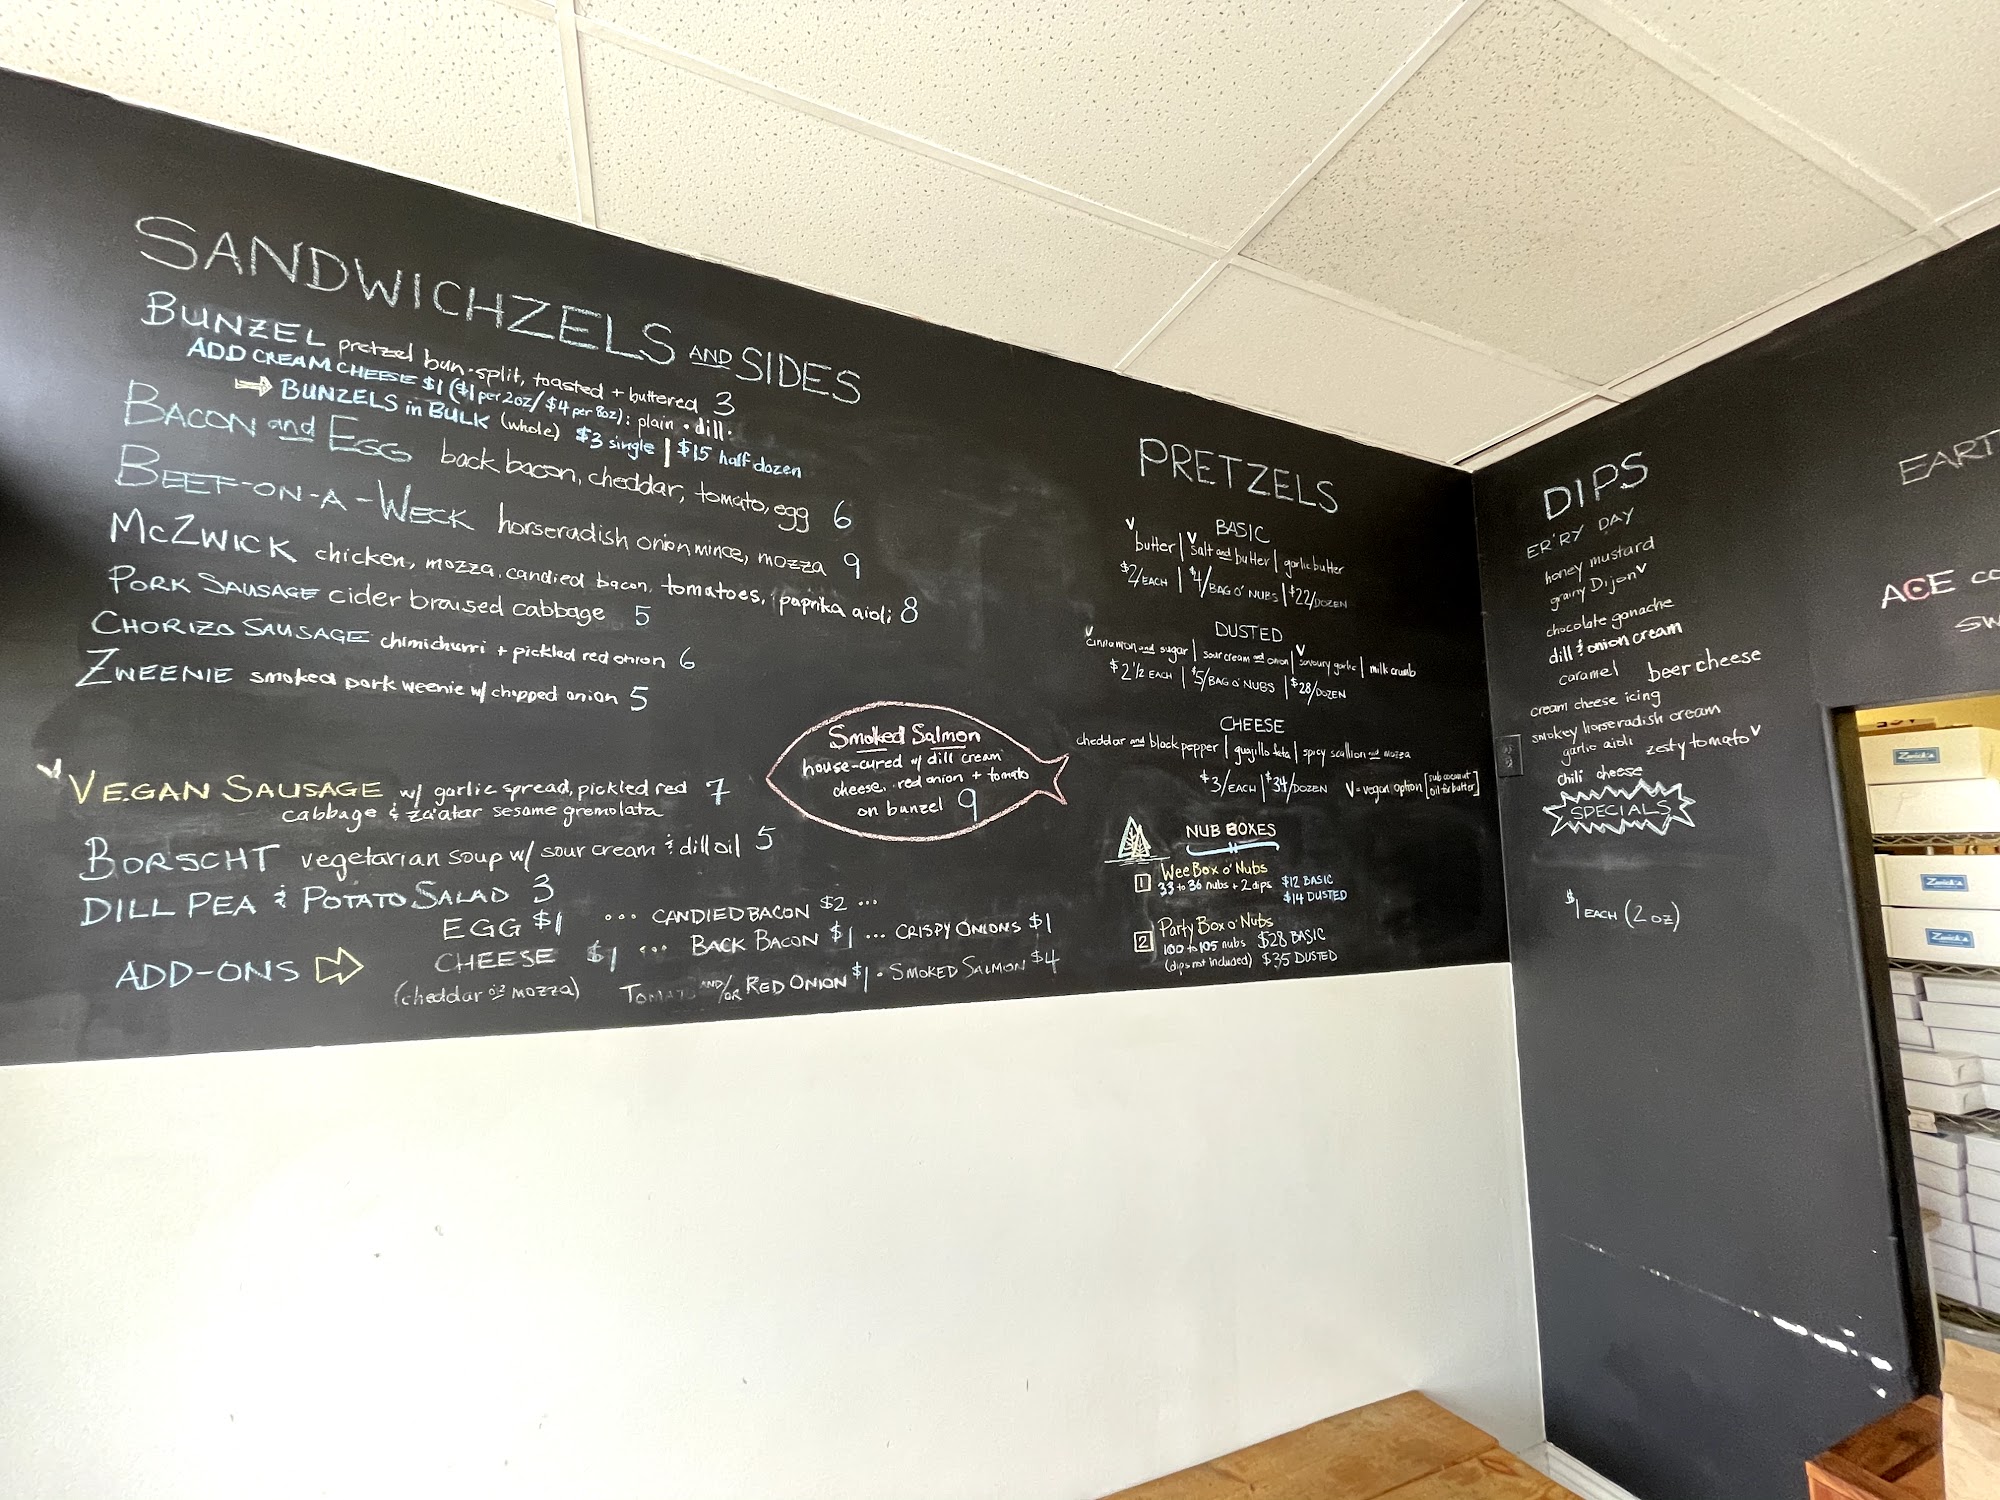 SANDWICHZELS AND SIDES
BUNZEL pretzel bun · split, toasted + buttered 3
ADD CREAM CHEESE $1 ($1 per 2oz / $4 per 8oz) : plain · dill ·
BUNZELS in BULK (whole) $3 single | $15 half dozen
BACON and EGG back bacon, cheddar, tomato, egg 6
BEEF-ON-A-WECK horseradish onion mince, mozza 9
MCZWICK chicken, mozza, candied bacon, tomatoes, paprika aioli 8
PORK SAUSAGE cider braised cabbage 5
CHORIZO SAUSAGE chimichurri + pickled red onion 6
ZWEENIE smoked pork weenie w/ chopped onion 5
V VEGAN SAUSAGE w/ garlic spread, pickled red 7
cabbage & za'atar sesame gremolata
BORSCHT vegetarian soup w/ sour cream & dill oil 5
DILL PEA & POTATO SALAD 3
ADD-ONS
EGG $1 ... CANDIED BACON $2 ...
CHEESE $1 ... BACK BACON $1 ... CRISPY ONIONS $1
(cheddar or mozza) TOMATO AND/OR RED ONION $1 · SMOKED SALMON $4
Smoked Salmon
house-cured w/ dill cream
cheese, red onion + tomato
on bunzel 9
PRETZELS
BASIC
V butter | V salt and butter | garlic butter
$2/EACH | $4/BAG O' NUBS | $22/DOZEN
DUSTED
V cinnamon and sugar | sour cream and onion | V savoury garlic | milk crumb
$2 1/2 EACH | $5/BAG O' NUBS | $28/DOZEN
CHEESE
cheddar and black pepper | guajillo feta | spicy scallion and mozza
$3/EACH | $34/DOZEN V = vegan option [sub coconut
oil for butter]
NUB BOXES
1 Wee Box o' Nubs
33 to 36 nubs + 2 dips $12 BASIC
$14 DUSTED
2 Party Box o' Nubs
100 to 105 nubs $28 BASIC
(dips not included) $35 DUSTED
DIPS
ER'RY DAY
honey mustard
grainy Dijon V
chocolate ganache
dill & onion cream
caramel beer cheese
cream cheese icing
smokey horseradish cream
garlic aioli zesty tomato V
chili cheese
SPECIALS
$1 EACH (2 oz)
EART
ACE CO
SW
Zwick's
Zwick's
Zwick's